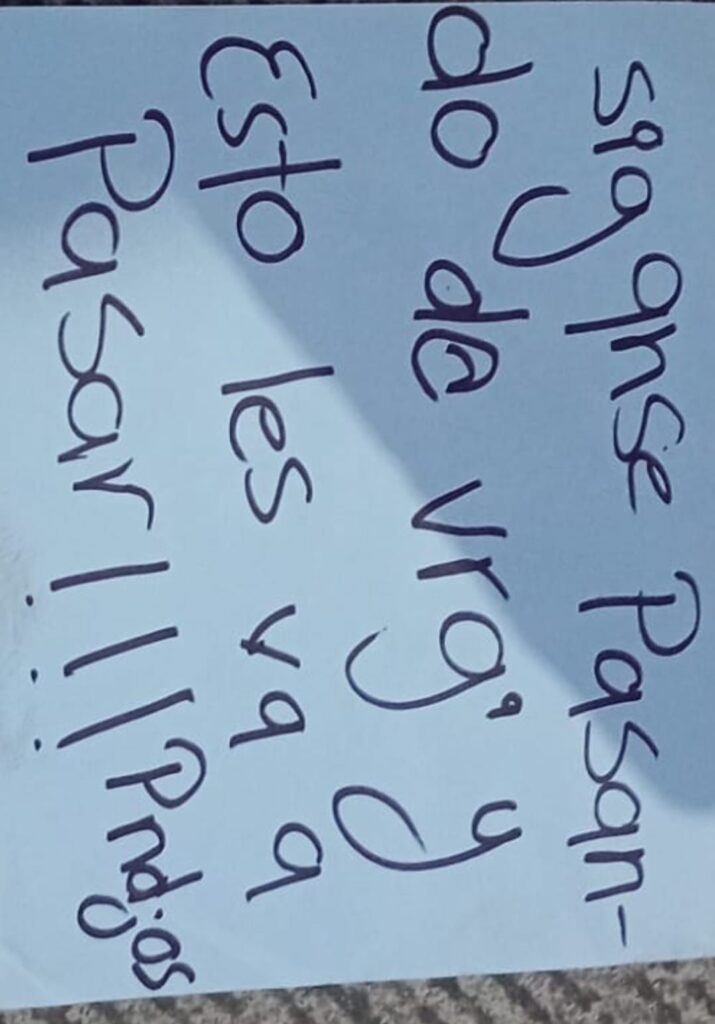 sigqnse Pasan-
do de vrga y
Esto les va a
Pasar!!! Pndjos